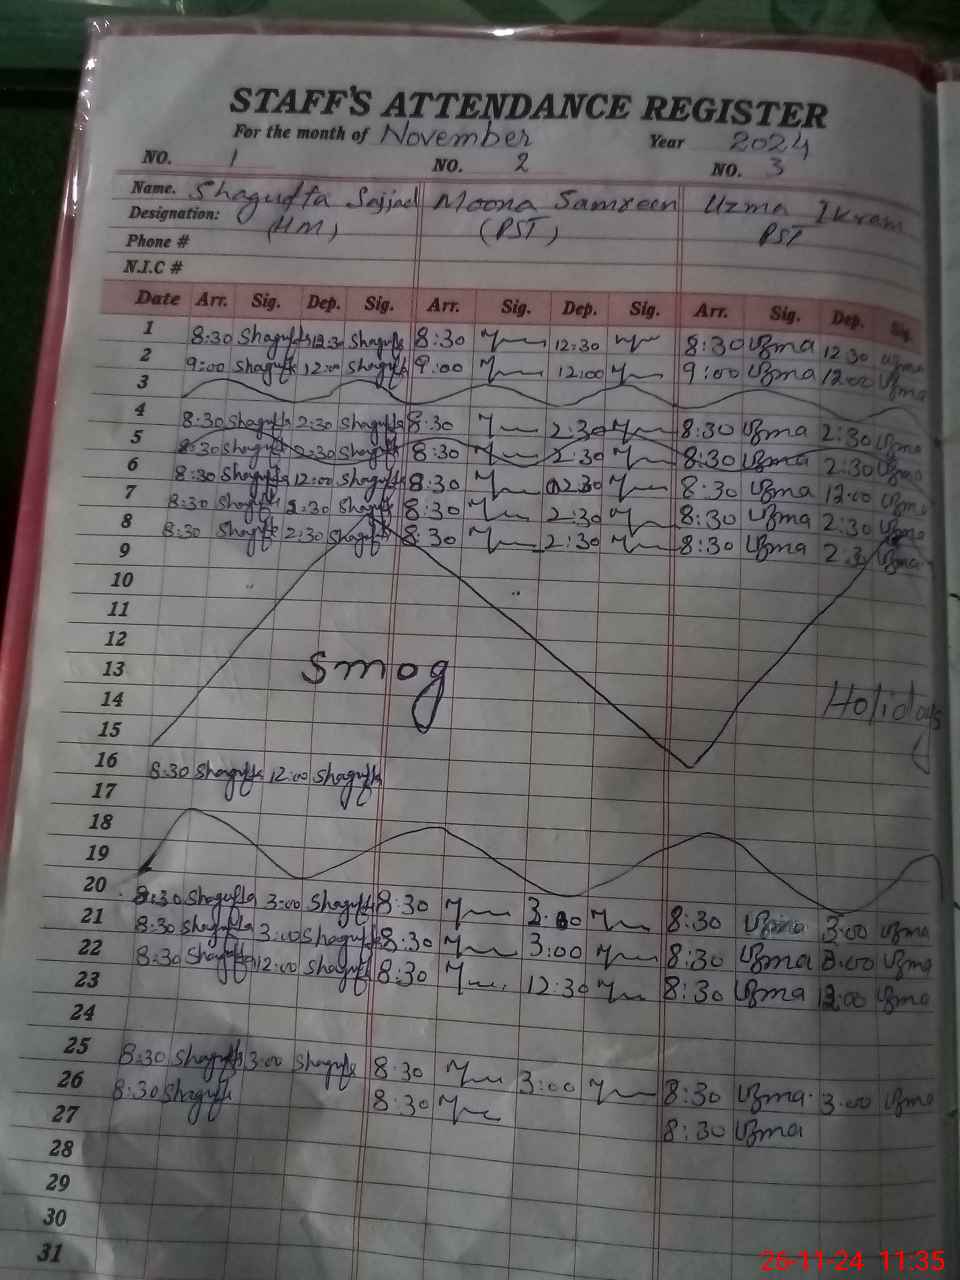 STAFF'S ATTENDANCE REGISTER
For the month of November Year 2024
NO. 1 NO. 2 NO. 3
Name. Shagufta Sajjad Moona Samreen Uzma Ikram
Designation: (HM) (PST) PST
Phone #
N.I.C #
Date Arr. Sig. Dep. Sig. Arr. Sig. Dep. Sig. Arr. Sig. Dep. Sig.
1 8:30 Shagufta 12:30 Shagufta 8:30 12:30 8:30 Uzma 12:30 Uzma
2 9:00 Shagufta 12:00 Shagufta 9:00 12:00 9:00 Uzma 12:00 Uzma
3
4 8:30 Shagufta 2:30 Shagufta 8:30 2:30 8:30 Uzma 2:30 Uzma
5 8:30 Shagufta 2:30 Shagufta 8:30 2:30 8:30 Uzma 2:30 Uzma
6 8:30 Shagufta 12:00 Shagufta 8:30 8:30 Uzma 12:00 Uzma
7 8:30 Shagufta 2:30 Shagufta 8:30 2:30 8:30 Uzma 2:30 Uzma
8 8:30 Shagufta 2:30 Shagufta 8:30 2:30 8:30 Uzma 2:30 Uzma
9
10
11
12
13 Smog
14 Holidays
15
16 8:30 Shagufta 12:00 Shagufta
17
18
19
20 8:30 Shagufta 3:00 Shagufta 8:30 3:00 8:30 Uzma 3:00 Uzma
21 8:30 Shagufta 3:00 Shagufta 8:30 3:00 8:30 Uzma 3:00 Uzma
22 8:30 Shagufta 12:00 Shagufta 8:30 12:30 8:30 Uzma 12:00 Uzma
23
24
25 8:30 Shagufta 3:00 Shagufta 8:30 3:00 8:30 Uzma 3:00 Uzma
26 8:30 Shagufta 8:30 8:30 Uzma
27
28
29
30
31
26-11-24 11:35